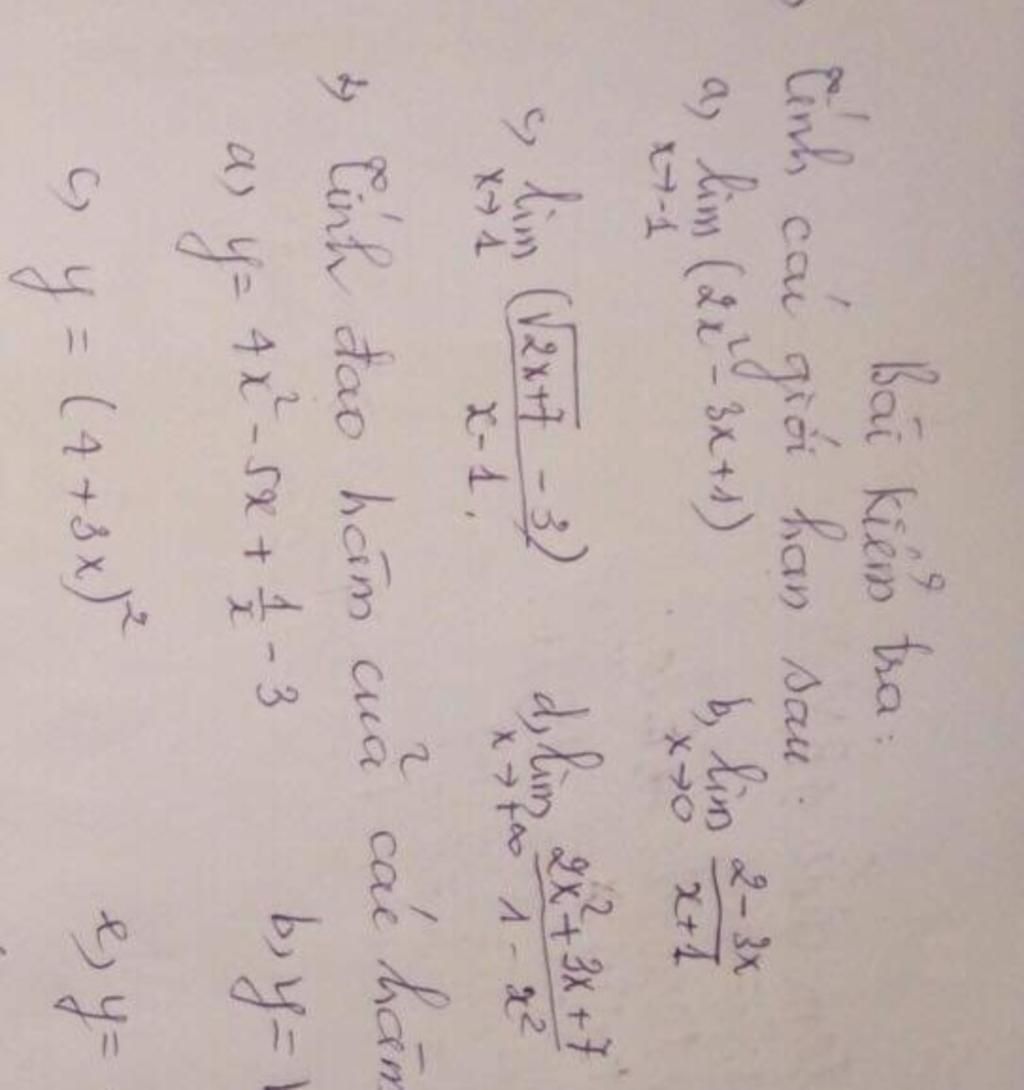 Bài kiểm tra:
Tính các giới hạn sau:
a, lim x→-1 (2x² - 3x + 1)   b, lim x→0 (2 - 3x)/(x + 1)
c, lim x→1 (√(2x+7) - 3)/(x - 1)   d, lim x→+∞ (2x² + 3x + 7)/(1 - x²)
2, Tính đạo hàm của các hàm
a, y = 4x² - 5x + 1/x - 3   b, y =
c, y = (4 + 3x)²   e, y =